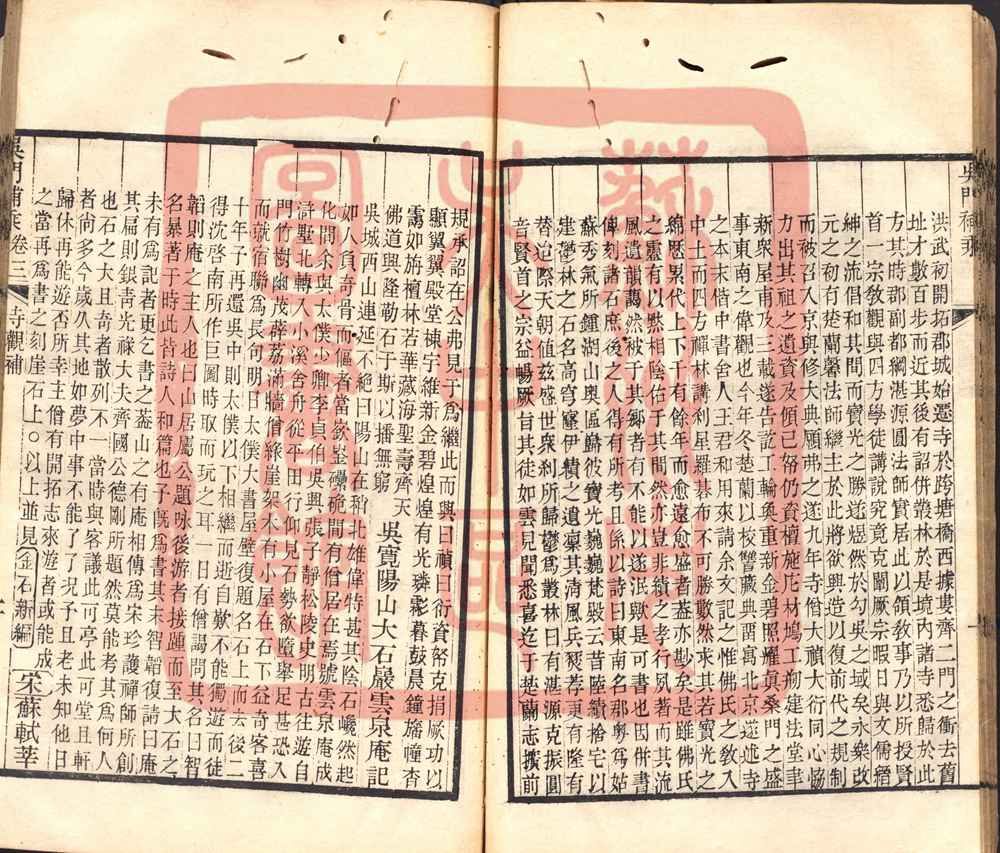 吳門補乘
洪武初開拓郡城始遷寺於跨塘橋西據婁齊二門之衝去舊
址才數百步而近其後有詔併叢林於是境內諸寺悉歸於此
方其時郡副都綱湛源圓法師實居此以領教事乃以所授賢
首一宗教觀與四方學徒講說究竟克闡厥宗暇日與文儒縉
紳之流倡和其間而寶光之勝遂熤然於勾吳之域矣永樂改
元之初有楚蘭馨法師繼主於此將欲興造以復前代之規制
而被召入京與修大典願弗之遂九年寺僧大禎大衍同心恊
力出其祖之遺資及傾已帑仍資檀施庀材鳩工剏建法堂聿
新衆屋甫及三載遂告訖工輪奐重新金碧照耀眞桑門之盛
事東南之偉觀也今年冬楚蘭以校讐藏典畱寓北京遊述寺
之本末偕中書舍人王君和用來請余文記之惟佛氏之教入
中土而四方禪林講刹星羅棊布不可勝數然求其若寶光之
綿歷累代上下千有餘年而愈遠愈盛者葢亦尠矣是雖佛氏
之靈有以黙相陰佑于其間然亦豈非績之孝行夙著而其流
風遺韻藹然被于其鄉者有不能以遂泯歟是可書也因併書
俾刻諸石庶後之人得有所考且係以詩曰東南名那粤爲姑
蘇秀氣所鍾湖山奧區麟彼寶光巍巍梵毀云昔陸績捨宅以
建鬱林之石名高穹窿伊積之遺稟其淸風兵燹荐更而隆有
替迨際天朝值茲盛世衆刹所歸鬱爲叢林曰有湛源克振圓
音賢首之宗益暢厥旨其徒如雲見聞悉喜迄于楚蘭志擴前
規承詔在公弗見于爲繼此而興曰禎曰衍資帑克捐厥功以
顯翼翼殿堂棟宇維新金碧煌煌有光璘霦暮鼓晨鐘旛幢杳
靄如旃檀林若華藏海聖壽齊天
佛道興隆勒石于斯以播無窮
吳寬陽山大石巖雲泉庵記
吳城西山連延不絕曰陽山在稍北雄偉特甚其陰石巉然起
如人負奇骨而傴者當嶔崟礨硊間有僧居在焉號雲泉庵成
化間余與太僕少卿李貞伯吳興張子靜松陵史明古往遊自
滸墅北轉入小溪舍舟從平田行仰見石勢欲墮舉足甚恐入
門竹樹幽茂薜荔滿牆循緣崖架木有小屋在石下益奇客喜
而就宿聯爲長句明日太僕大書屋壁復題名石上而去後二
十年子再還吳中則太僕以下相繼而逝自歎不能獨遊而徒
得沈啓南所作巨圖時取而玩之耳一日有僧謁問其名曰智
韜則庵之主人也曰山居屬公題咏後游者接踵而至大石之
名暴著于時此皆詩人和篇也予旣爲書其末智韜復請曰庵
未有爲記者更乞書之葢山之有庵相傳爲宋珍護禪師所創
其扁則銀靑光祿大夫齊國公德剛所題然莫能考其爲何人
也石之大且奇者散列不一當時與客議此可亭此可堂且軒
者尙多今歲久其地如夢中事不能了了况子且老未知他日
歸休再能遊否所幸主僧有開拓志來遊者或能成
之當再爲書之刻崖石上○以上並見金石新編 宋蘇軾莘
吳門補乘卷三 寺觀補